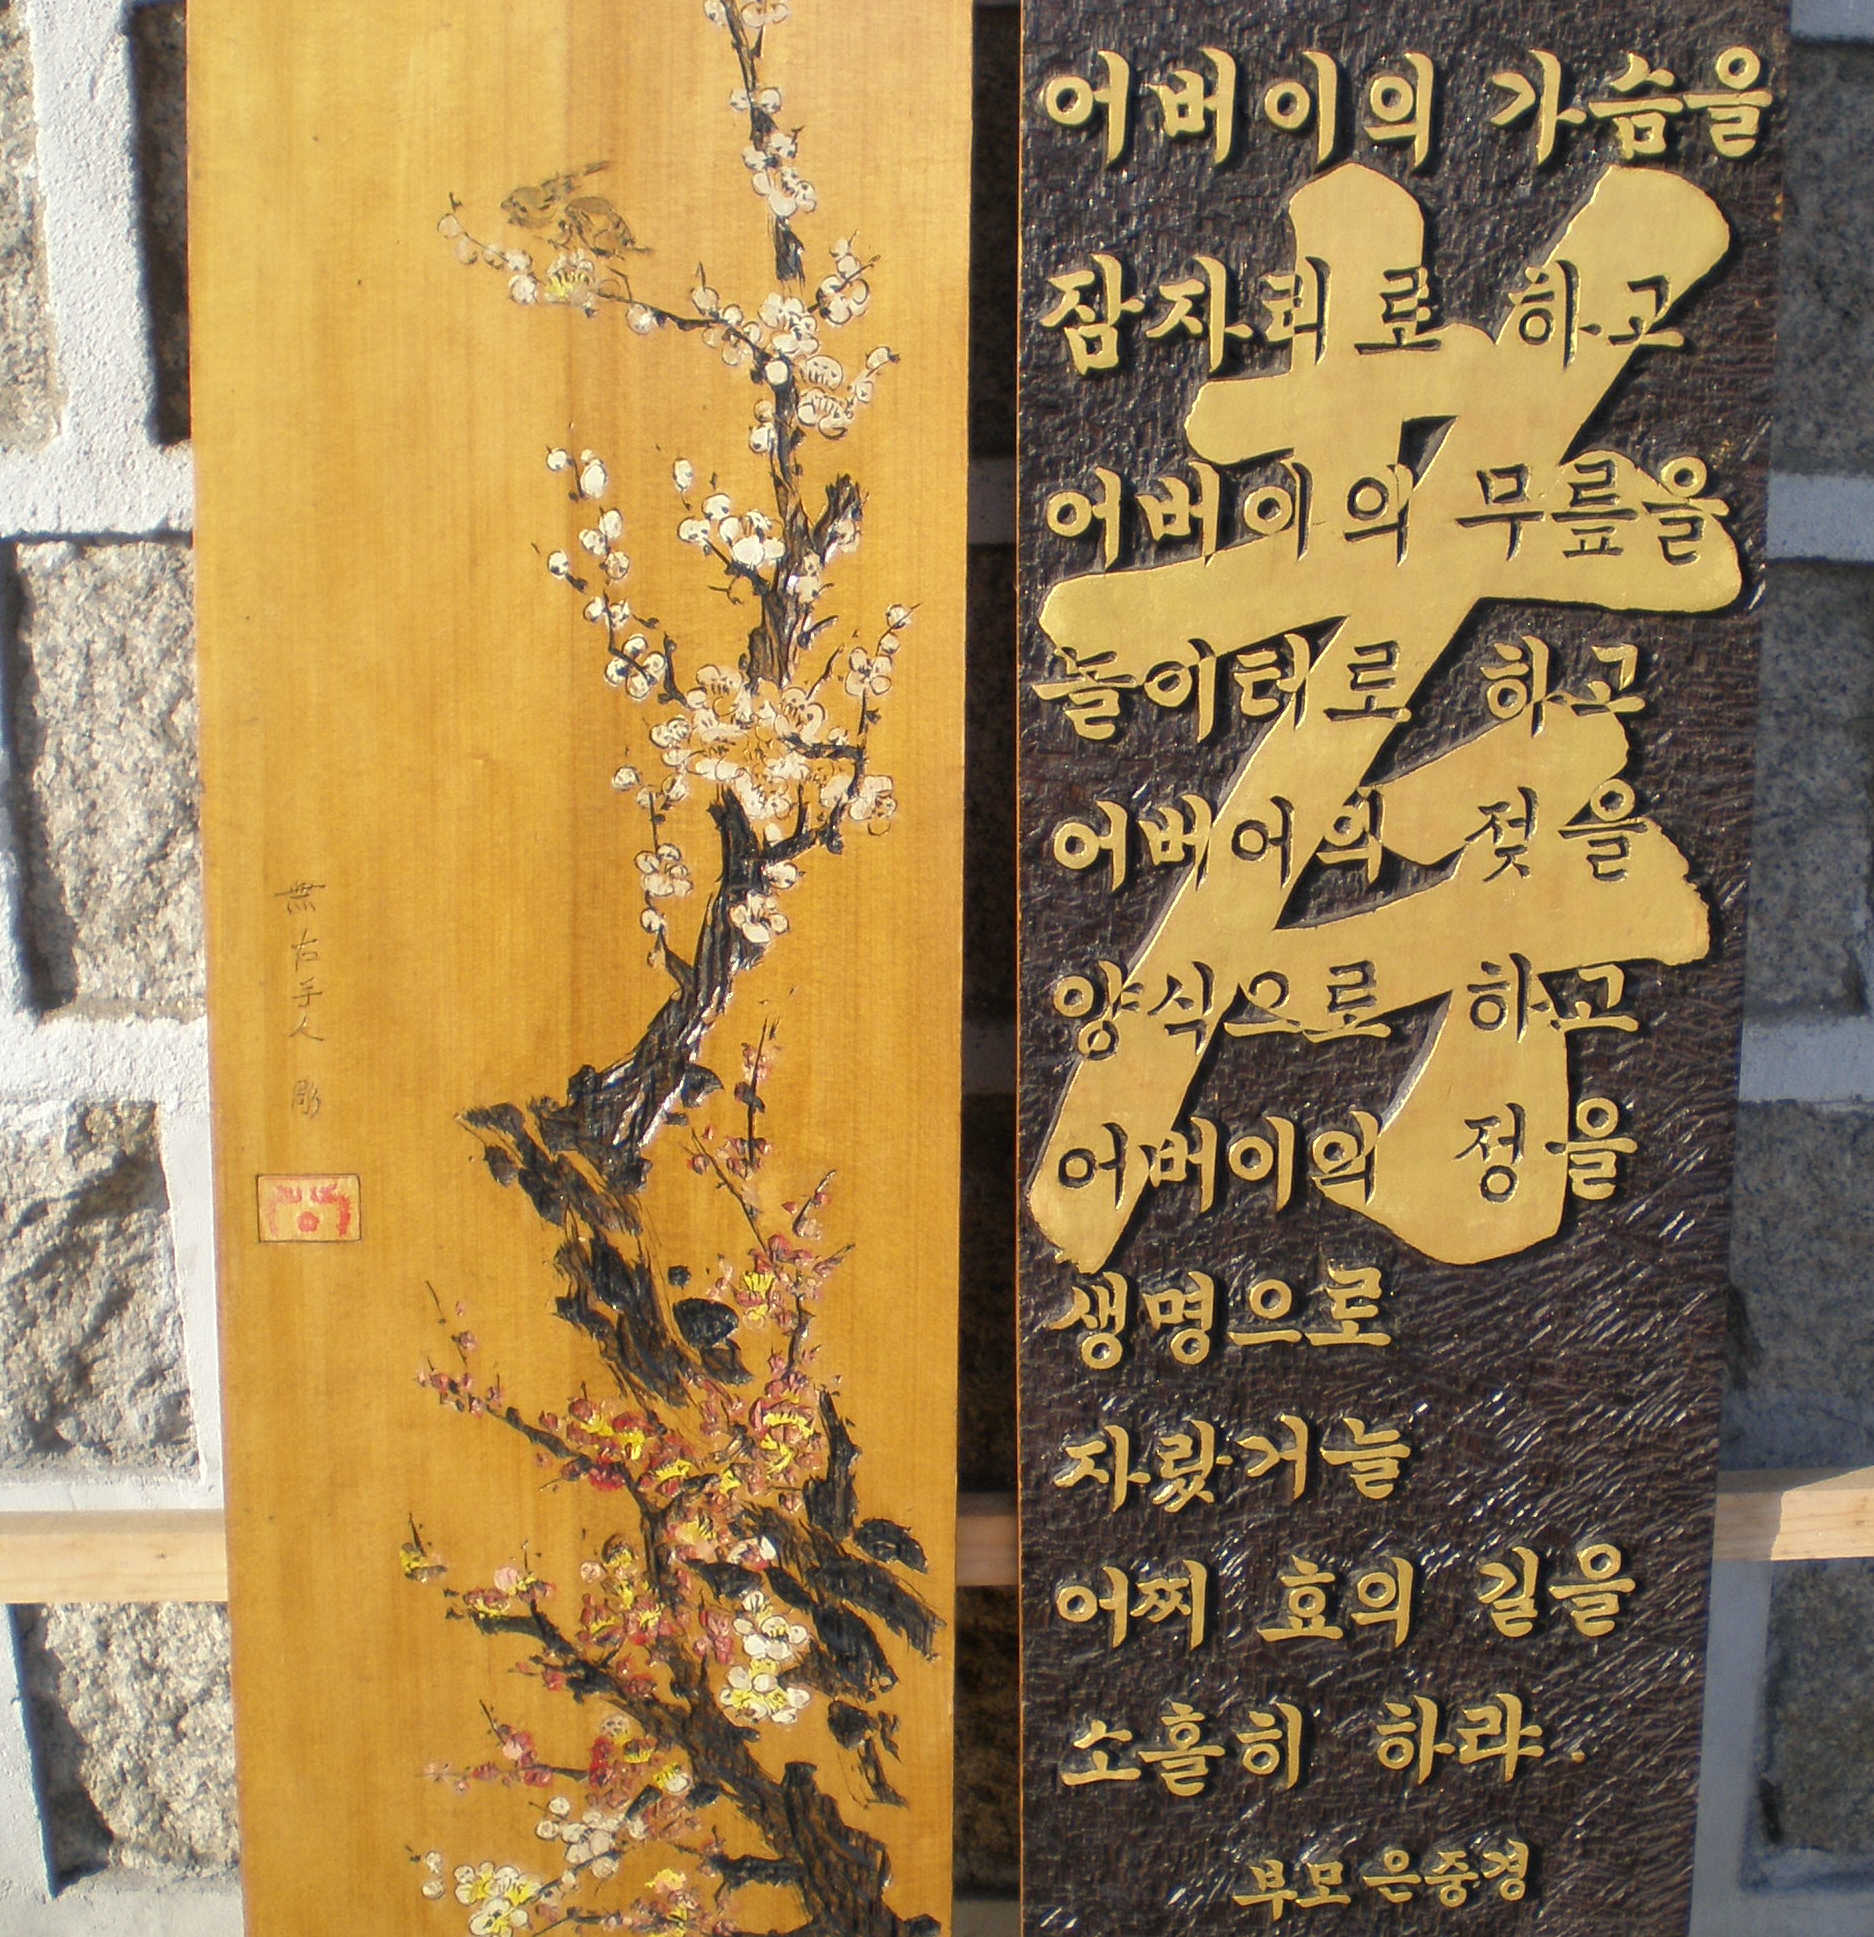 無右手人 彫
孝
어버이의 가슴을
잠자리로 하고
어버이의 무릎을
놀이터로 하고
어버이의 젖을
양식으로 하고
어버이의 정을
생명으로
자랐거늘
어찌 효의 길을
소홀히 하랴.
부모은중경